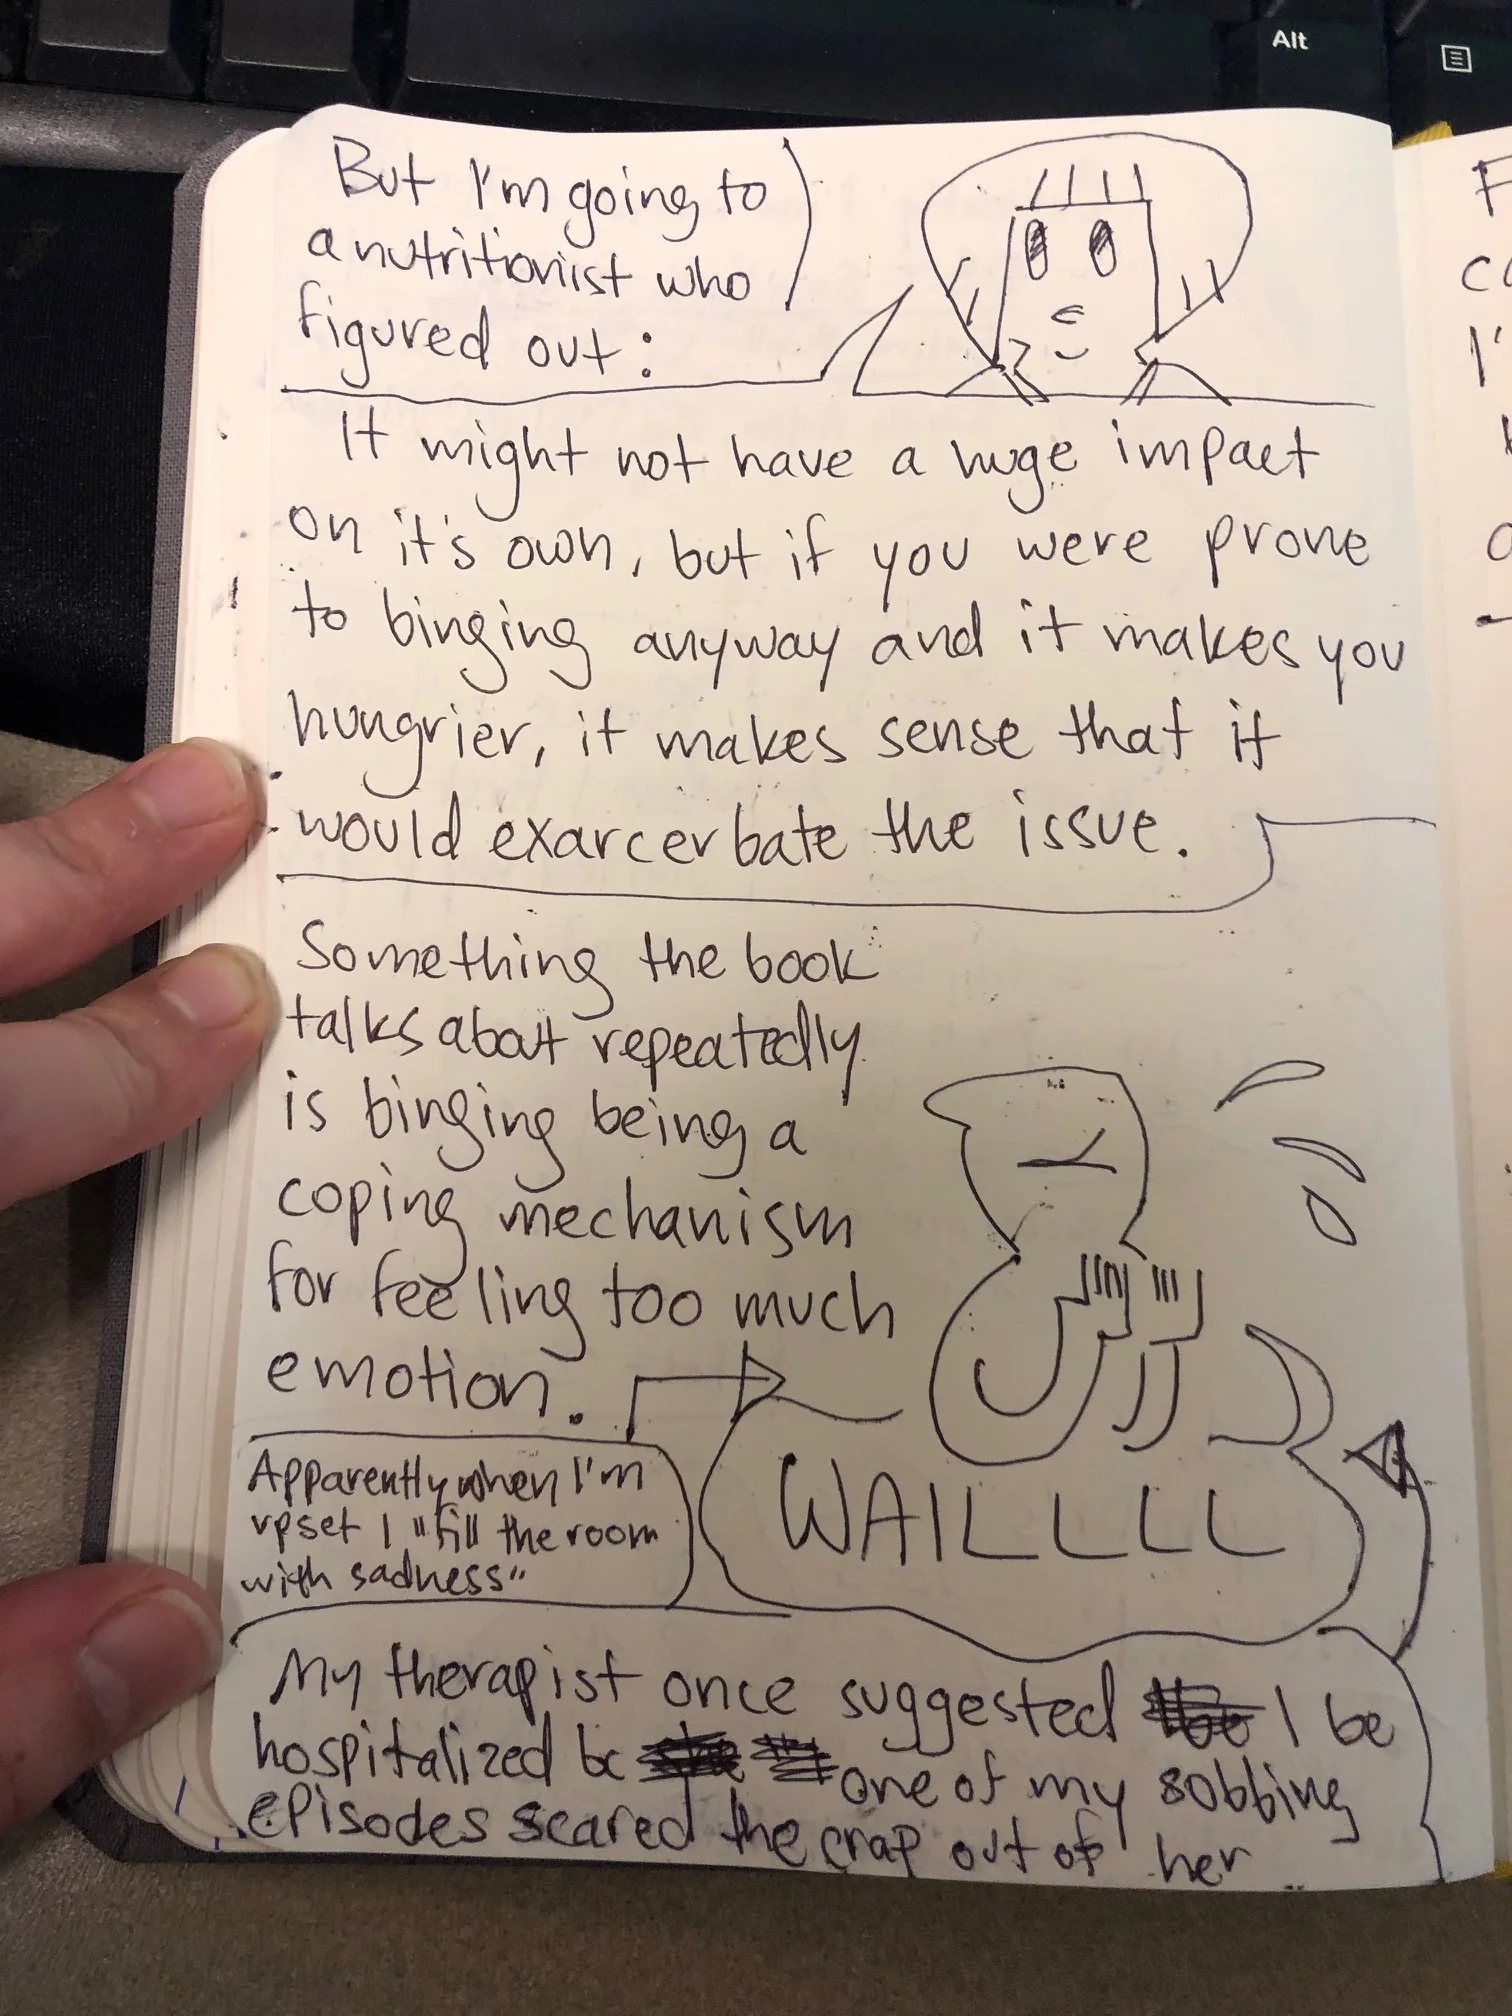 Alt
But I'm going to
a nutritionist who
figured out:
It might not have a huge impact
on it's own, but if you were prone
to binging anyway and it makes you
hungrier, it makes sense that it
would exarcerbate the issue.
Something the book
talks about repeatedly
is binging being a
coping mechanism
for feeling too much
emotion.
Apparently when I'm
upset I "fill the room
with sadness"
WAILLLL
My therapist once suggested I be
hospitalized bc one of my sobbing
episodes scared the crap out of her